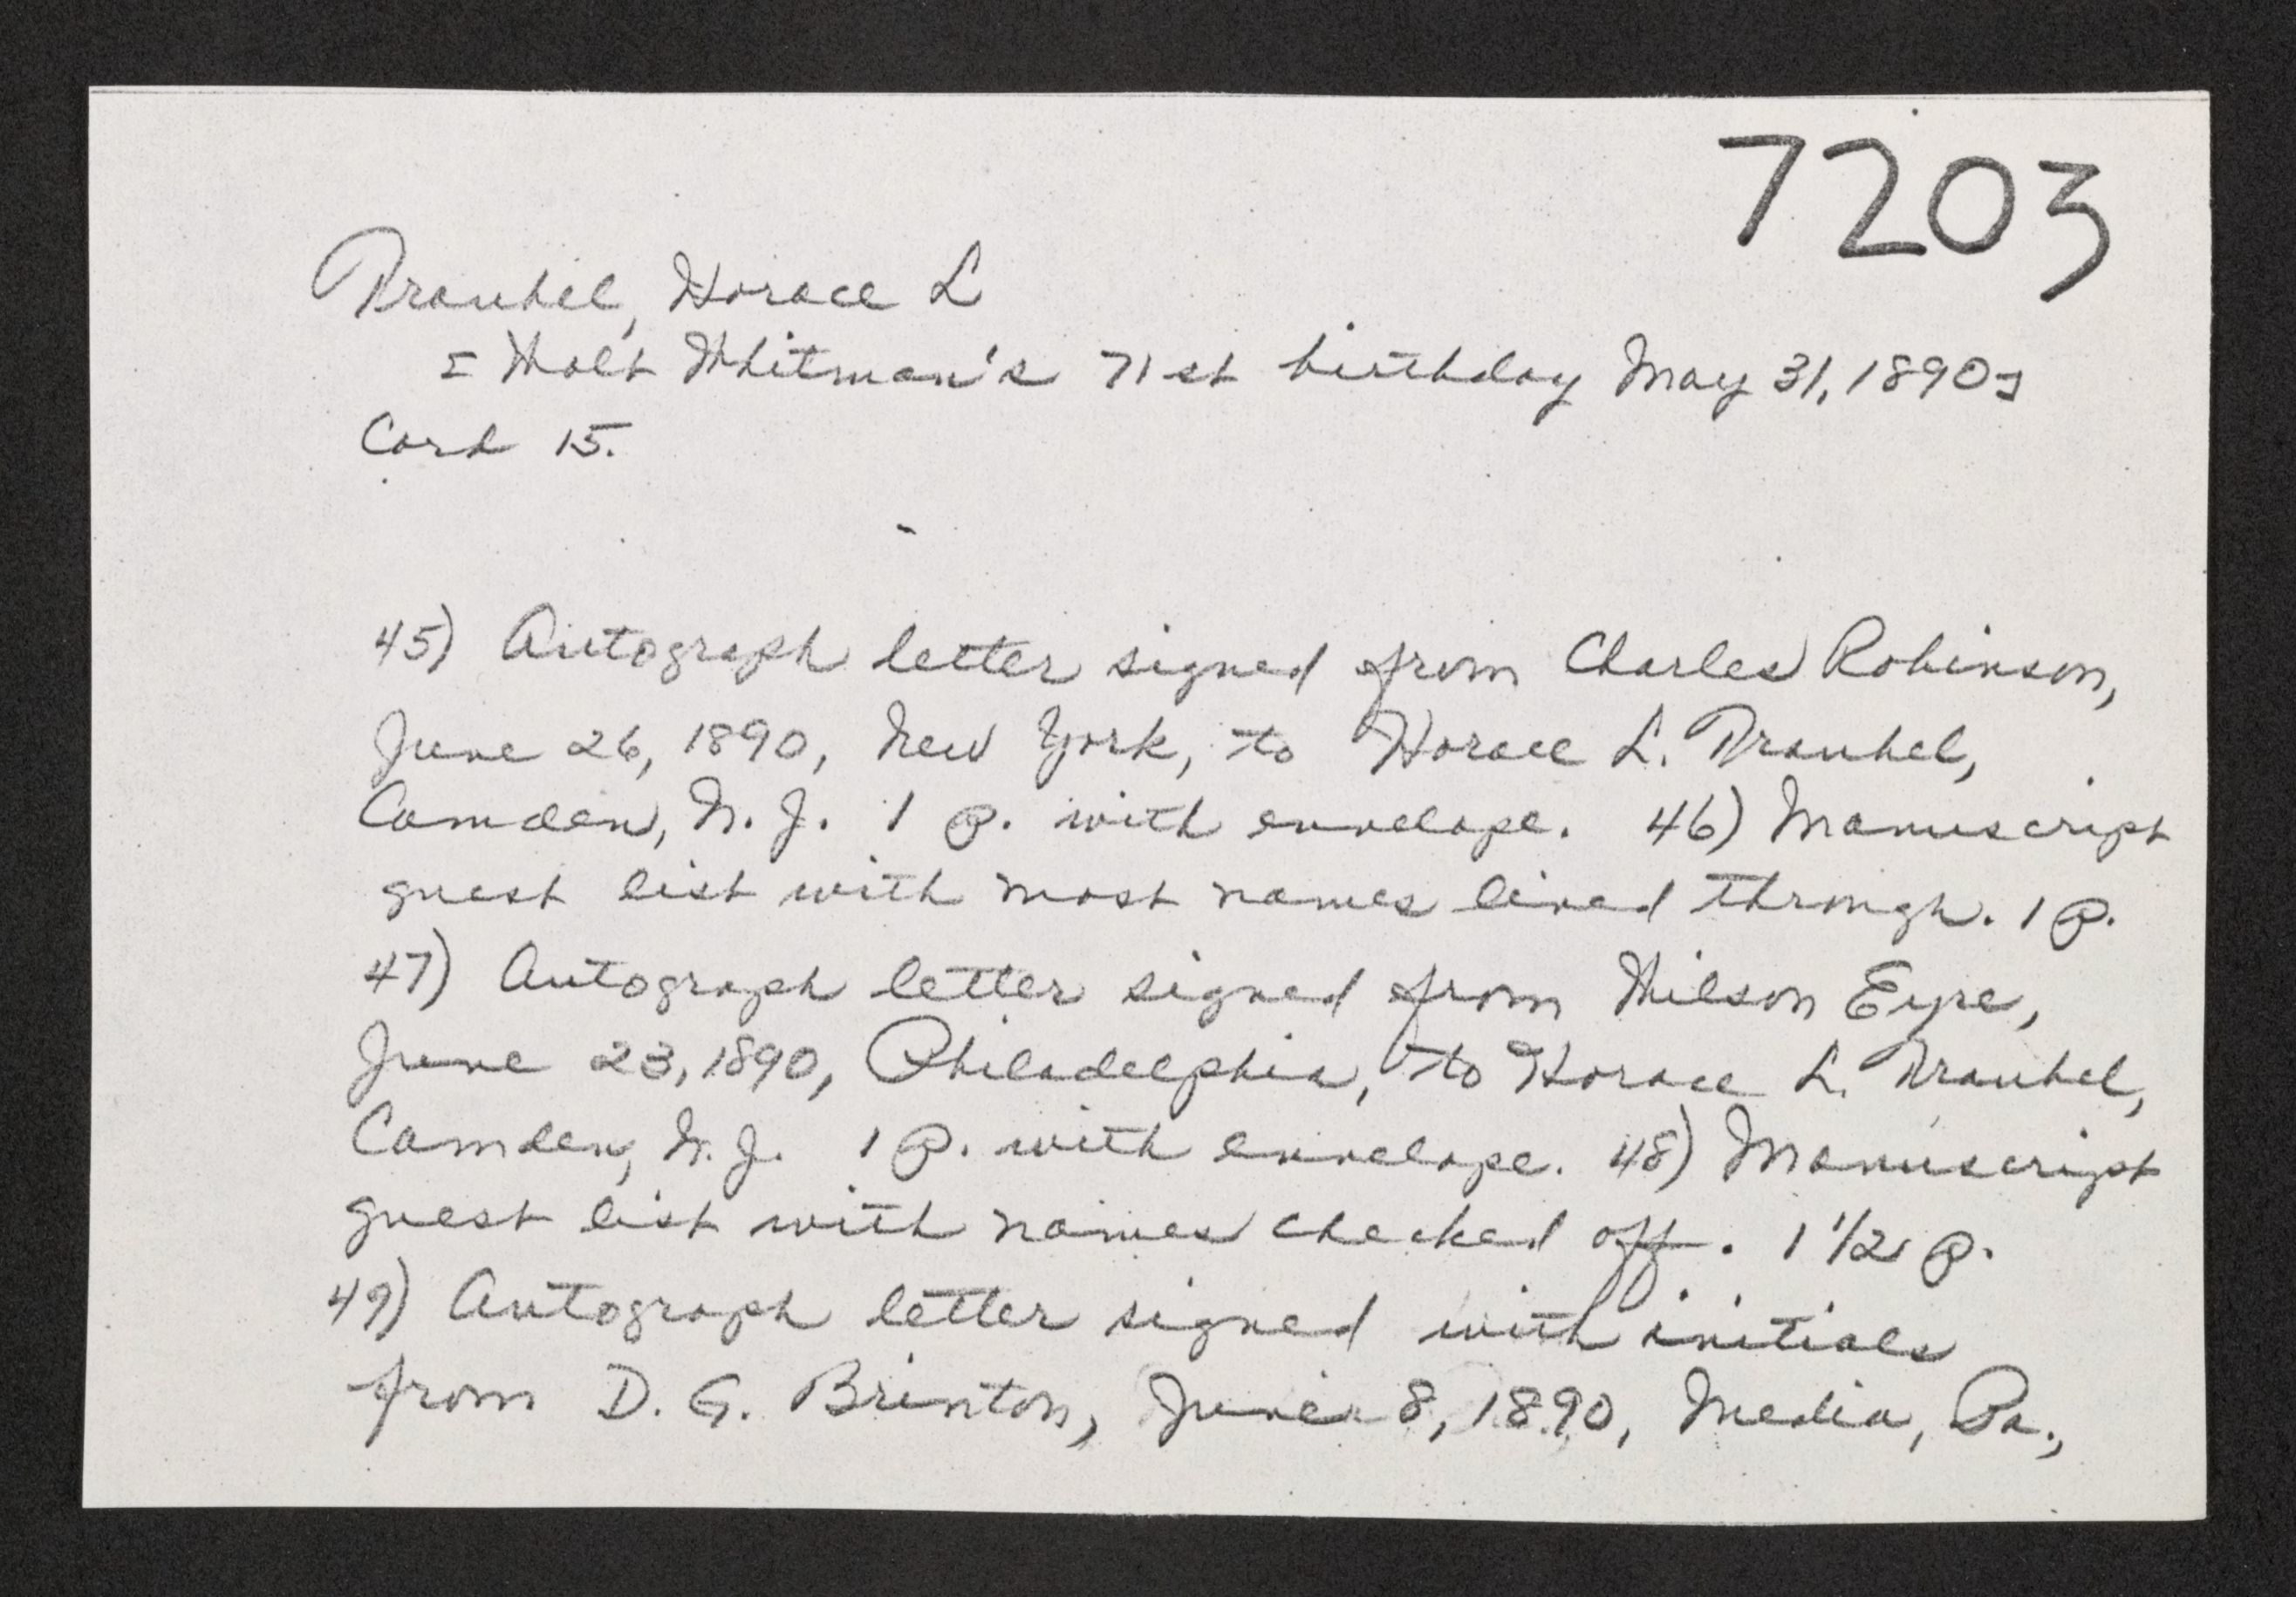 7203
Traubel, Horace L
[Walt Whitman's 71st birthday May 31, 1890]
Card 15.
45) Autograph letter signed from Charles Robinson,
June 26, 1890, New York, to Horace L. Traubel,
Camden, N. J. 1 p. with envelope. 46) Manuscript
guest list with most names lined through. 1 p.
47) Autograph letter signed from Wilson Eyre,
June 23, 1890, Philadelphia, to Horace L. Traubel,
Camden, N. J. 1 p. with envelope. 48) Manuscript
guest list with names checked off. 1 1/2 p.
49) Autograph letter signed with initials
from D. G. Brinton, June 8, 1890, Media, Pa.,